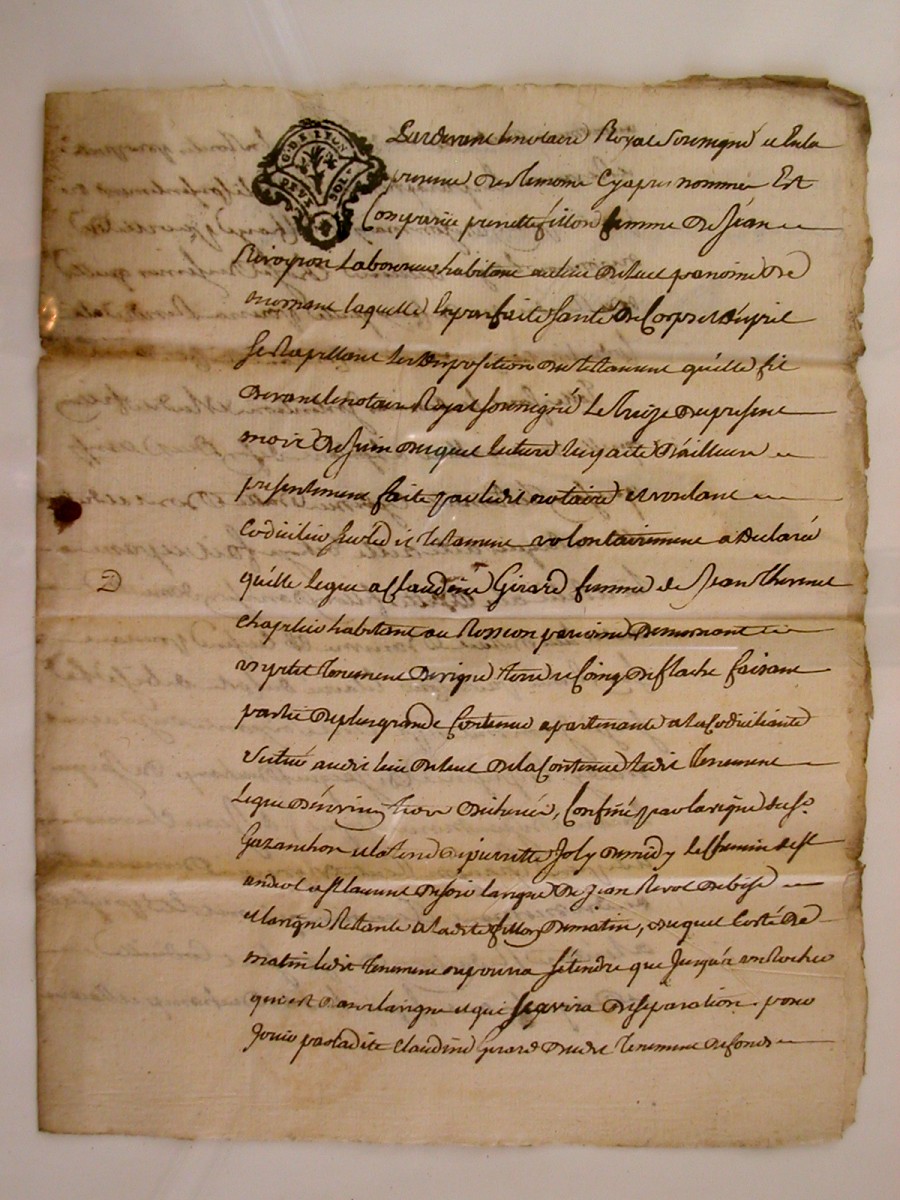 G. DE LYON
DEUX SOLS
Pardevant le notaire Royal Soussigné et en la
presence des temoins Cyapres nommes Est
Comparüe pierrette fillon femme de Jean
Rivoyron Laboureur habitant au lieu de paroisse de
mornant laquelle en parfaite santé de Corps et d'esprit
se Rapellant les disposition du testament qu'elle fit
devant le notaire Royal soussigné Le treize du present
mois de juin duquel lecture luy a été d'ailleurs
presentement faite par ledit notaire et voulant
Codiciler sur led it testament volontairement a declaré
D
qu'elle legue a Claudine Girard femme de Jean Thevenet
chapelier habitant au Rosson paroisse de mornant
un petit tenement de vigne terre et Coing de flache faisant
partie de plus grande Contenue apartenante a la Codicillante
situé audit lieu de la Contenue ledit tenement
Legué d'environ trois bicherées, Confiné par la vigne du Sr
Gazanchon et la terre de pierrette Joly de midy le Chemin de st
andeol a st laurent de soir la vigne de Jean Rivol de bise
et la vigne Restante a ladite fillon de matin, duquel Costé de
matin ledit tenement ne poura s'étendre que Jusqu'a un Rocher
qui est dans la vigne et qui servira de separation. pour
Jouir par ladite Claudine Girard dudit tenement de fonds